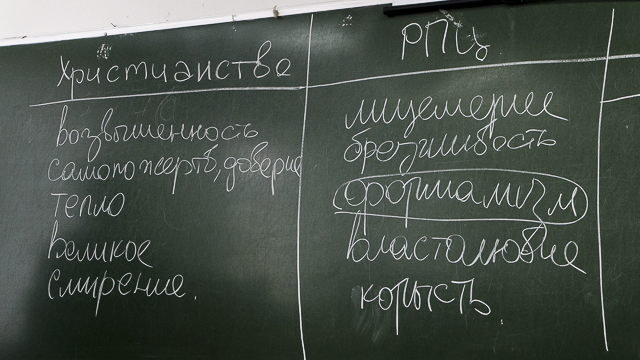 Христианство
возвышенность
самопожертв, доверие
тепло
великое
смирение.
РПЦ
лицемерие
брезгливость
формализм
властолюбие
корысть